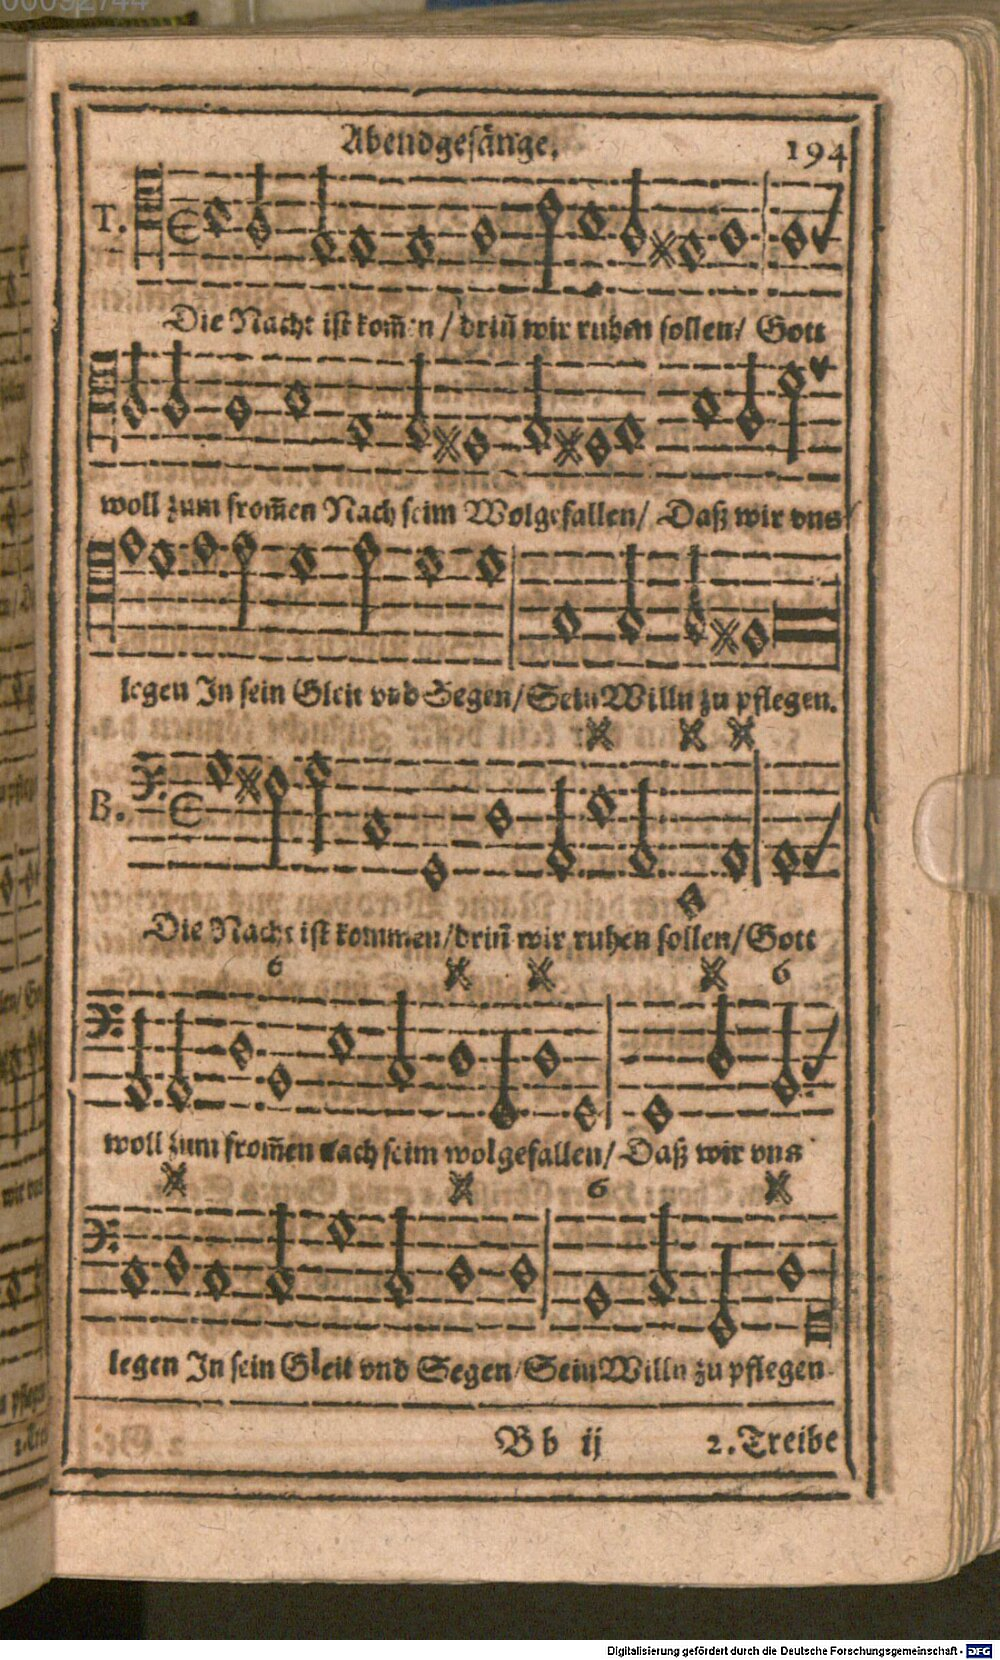 00092744
Abendgesänge. 194
T.
Die Nacht ist kom̃en / driñ wir ruhen sollen / Gott
woll zum from̃en Nach seim Wolgefallen / Daß wir vns /
legen In sein Gleit vnd Segen / Sein Willn zu pflegen.
B.
Die Nacht ist kommen / driñ wir ruhen sollen / Gott
6 6
woll zum from̃en nach seim wolgefallen / Daß wir vns
6
legen In sein Gleit vnd Segen / Sein Willn zu pflegen.
B b ij 2. Treibe
Digitalisierung gefördert durch die Deutsche Forschungsgemeinschaft - DFG